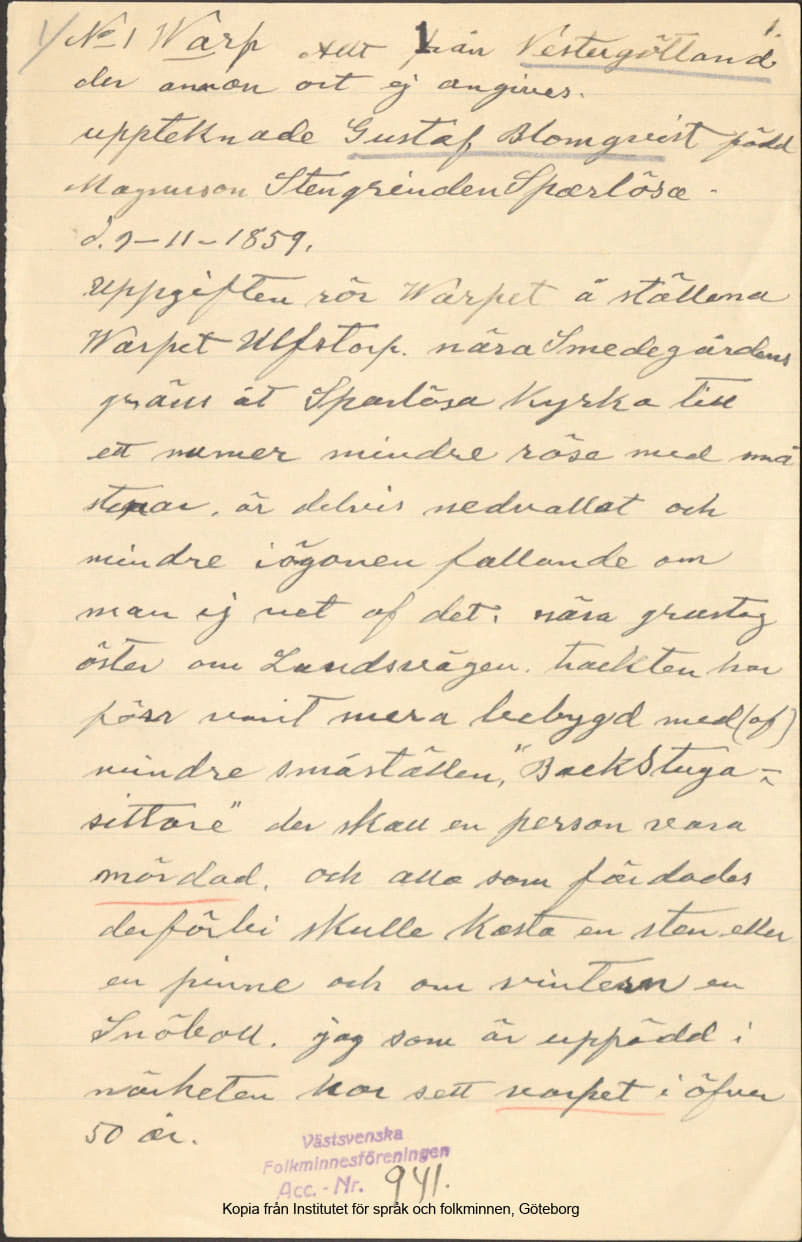 1/ No 1 Warp Allt från Vestergötland 1.
1
der annan ort ej angives.
upptecknade Gustaf Blomqvist född
Magnuson Stengrinden Sparlösa -
d. 9-11-1859.
Uppgiften rör Warpet å ställena
Warpet Ulfstorp. nära Smedegårdens
gräns åt Sparlösa Kyrka till
ett numer mindre röse med små
stenar, är delvis nedvallat och
mindre iögonen fallande om
man ej vet af det. nära grustag
öster om Landsvägen. trackten har
förr varit mera bebygd med (af)
mindre småställen, "BackStuga=
sittare" der skall en person vara
mördad. och alla som färdades
derförbi skulle Kasta en sten eller
en pinne och om vintern en
Snöboll. jag som är uppfödd i
närheten har sett varpet i öfver
50 år.
Västsvenska
Folkminnesföreningen
Acc. - Nr. 941.
Kopia från Institutet för språk och folkminnen, Göteborg